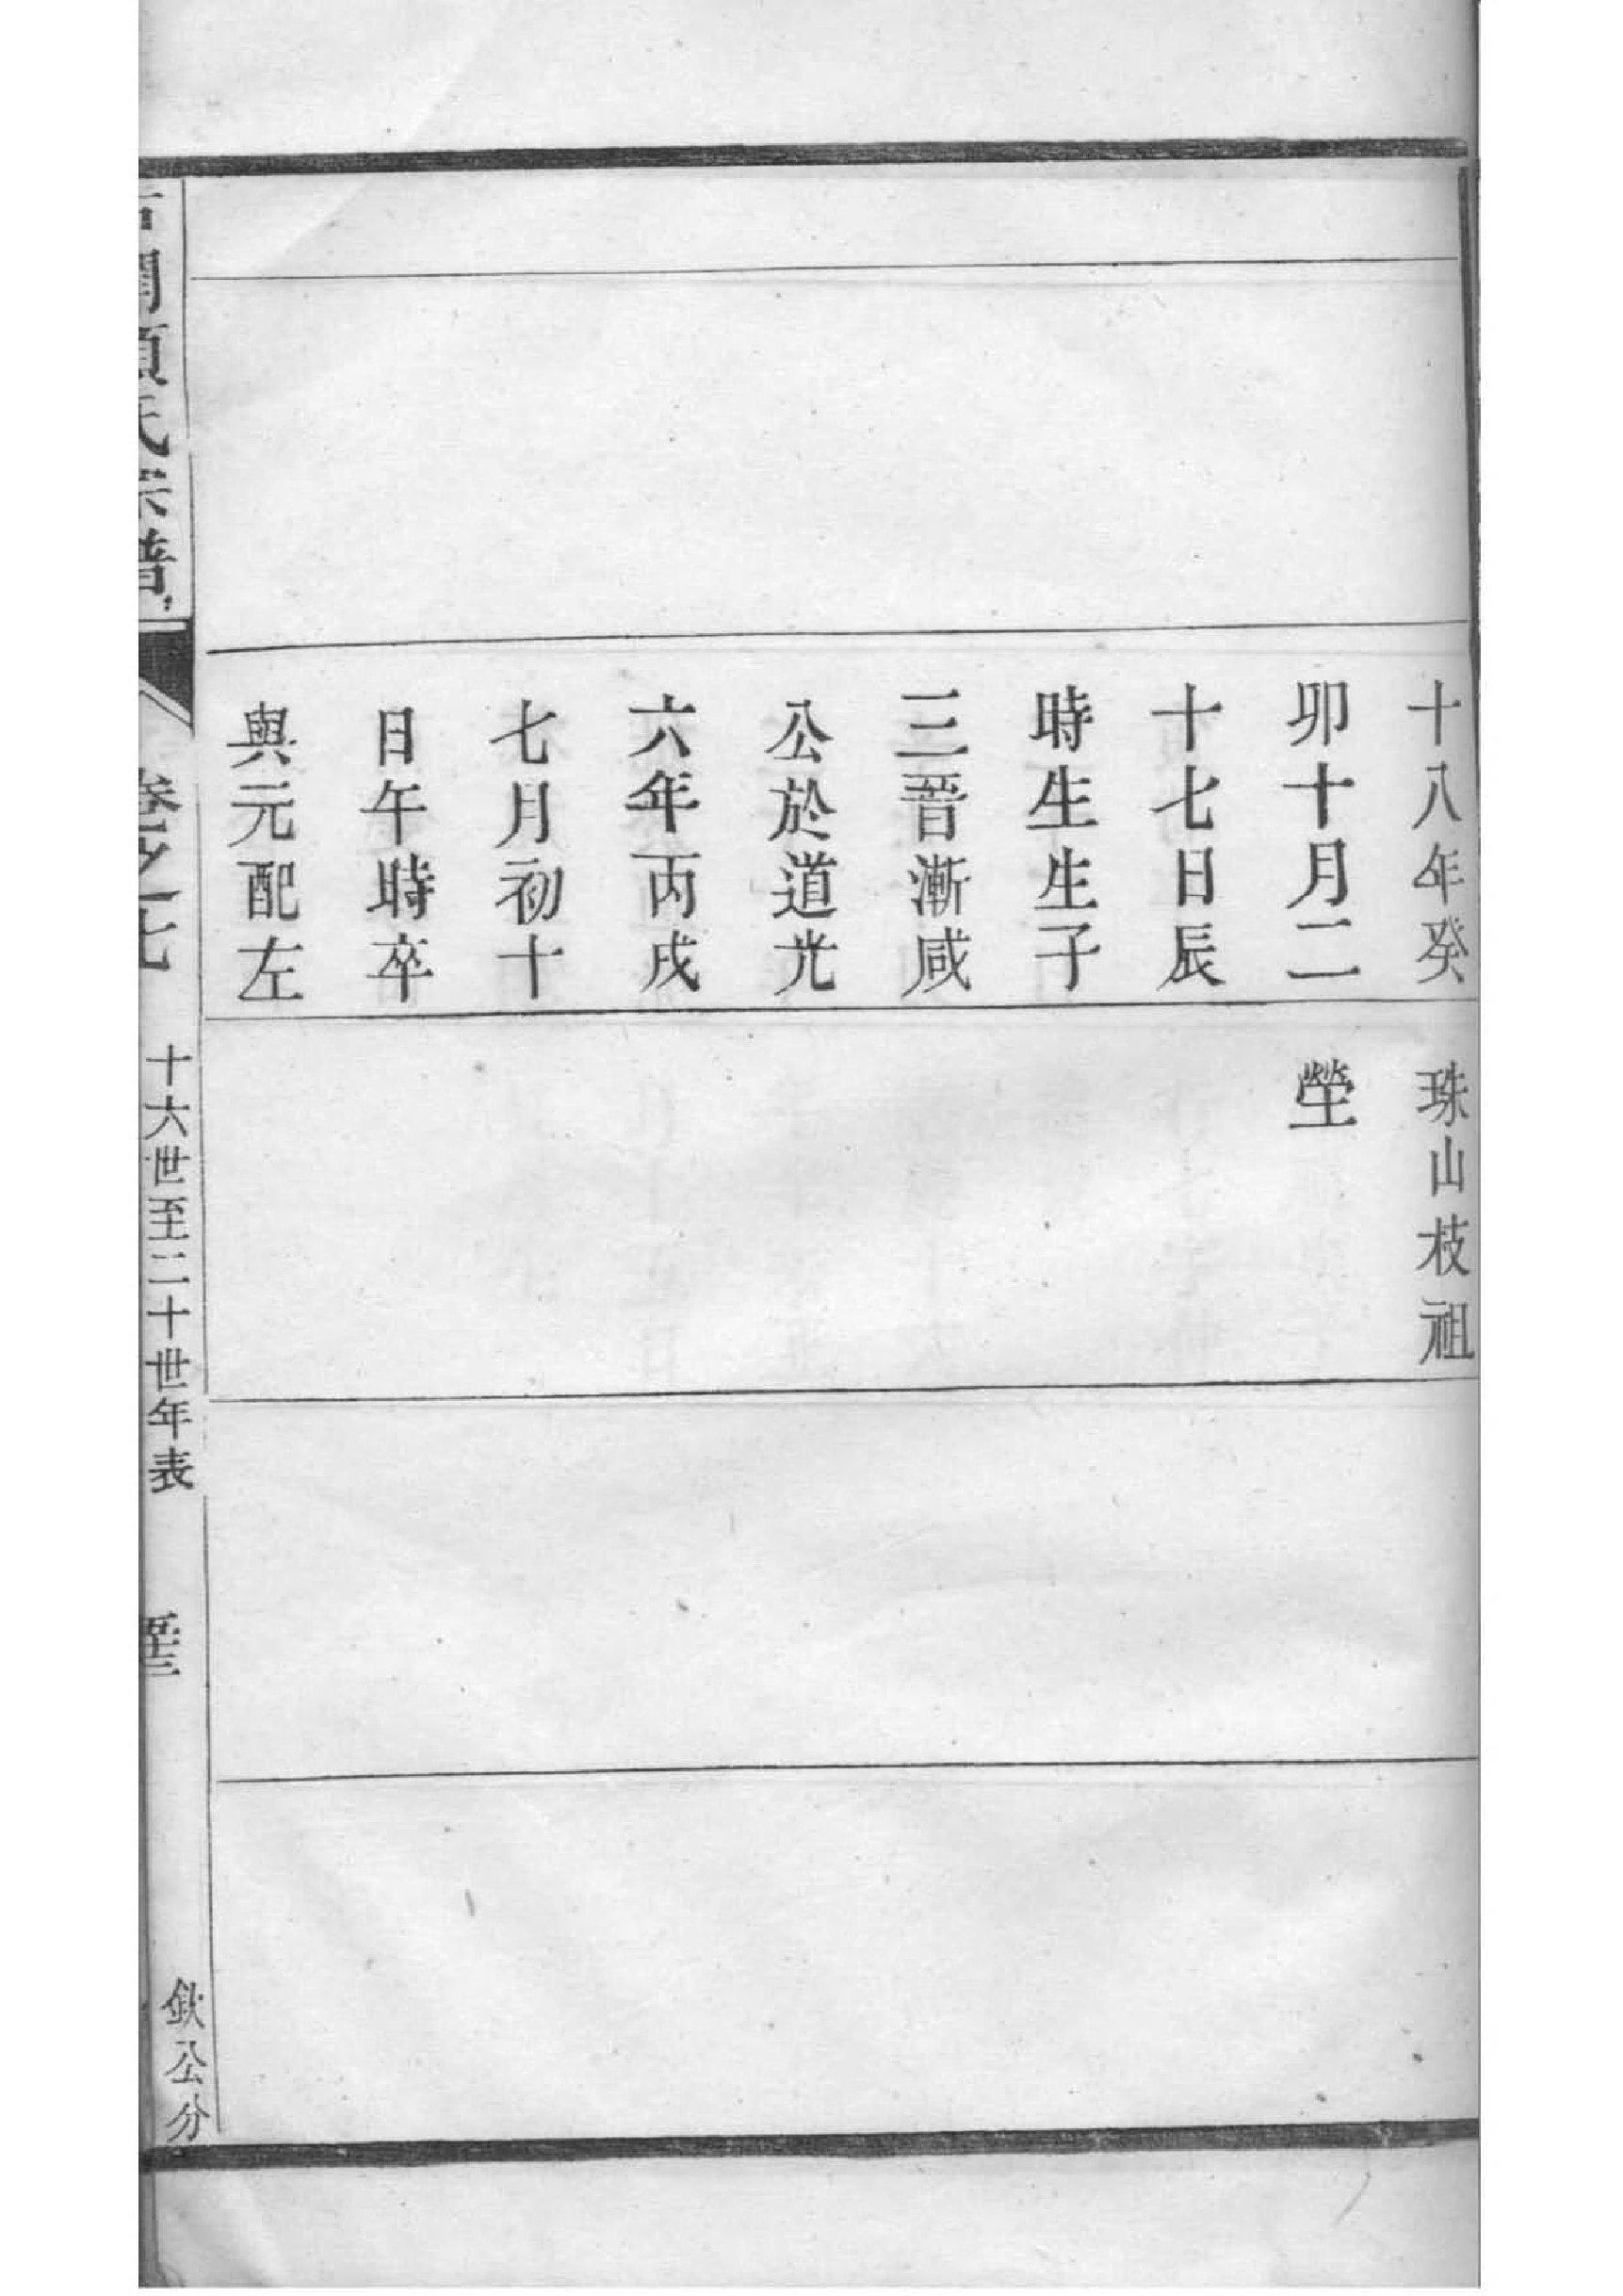 十八年癸
卯十月二
十七日辰
時生生子
三晉漸咸
公於道光
六年丙戌
七月初十
日午時卒
與元配左
珠山枝祖
塋
氏宗譜
卷之七
十六世至二十世年表
欽公分